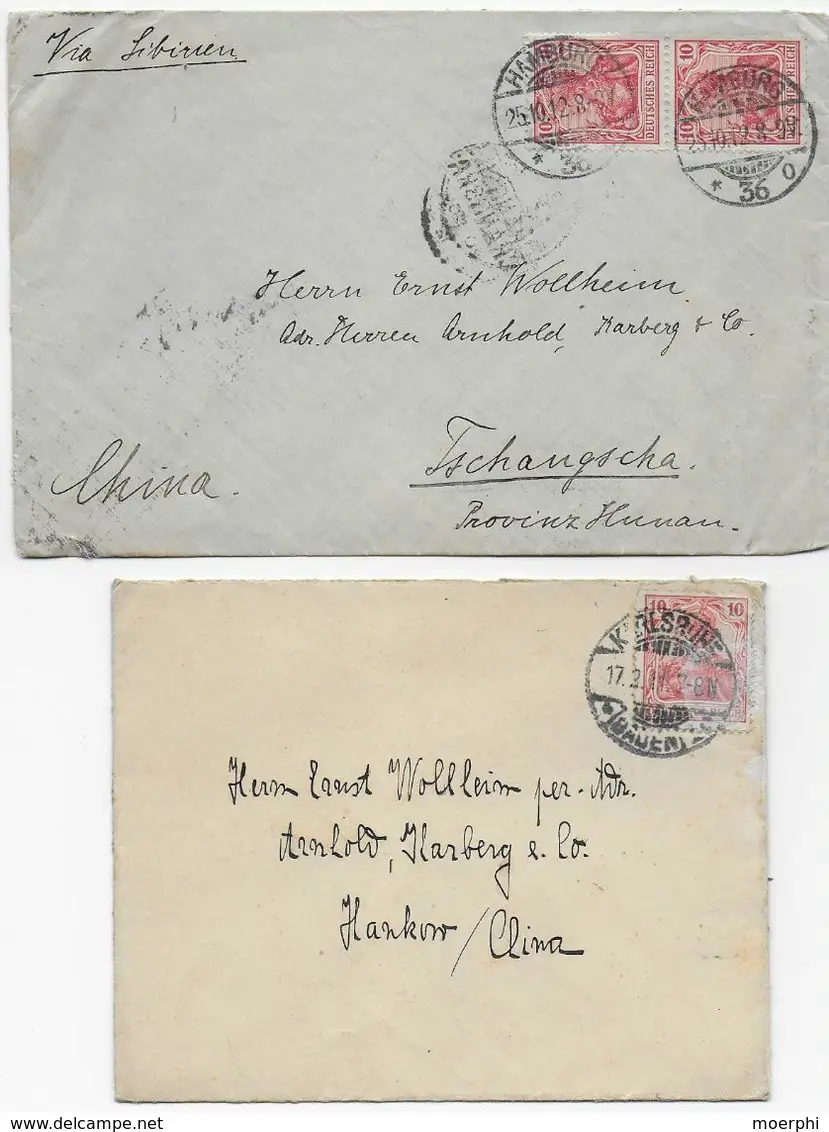 Via Sibirien
10
DEUTSCHES REICH
10
DEUTSCHES REICH
HAMBURG
25.10.12.8-9V.
* 36
HAMBURG
25.10.12.8-9V.
* 36 o
Herrn Ernst Wollheim
Adr. Herren Arnhold, Karberg & Co.
Tschangscha.
China.
Provinz Hunan.
10 10
KARLSRUHE
17.2.11. 7-8N
(BADEN)
Herrn Ernst Wollheim per. Adr.
Arnhold, Karberg & Co.
Hankow / China
moerphi